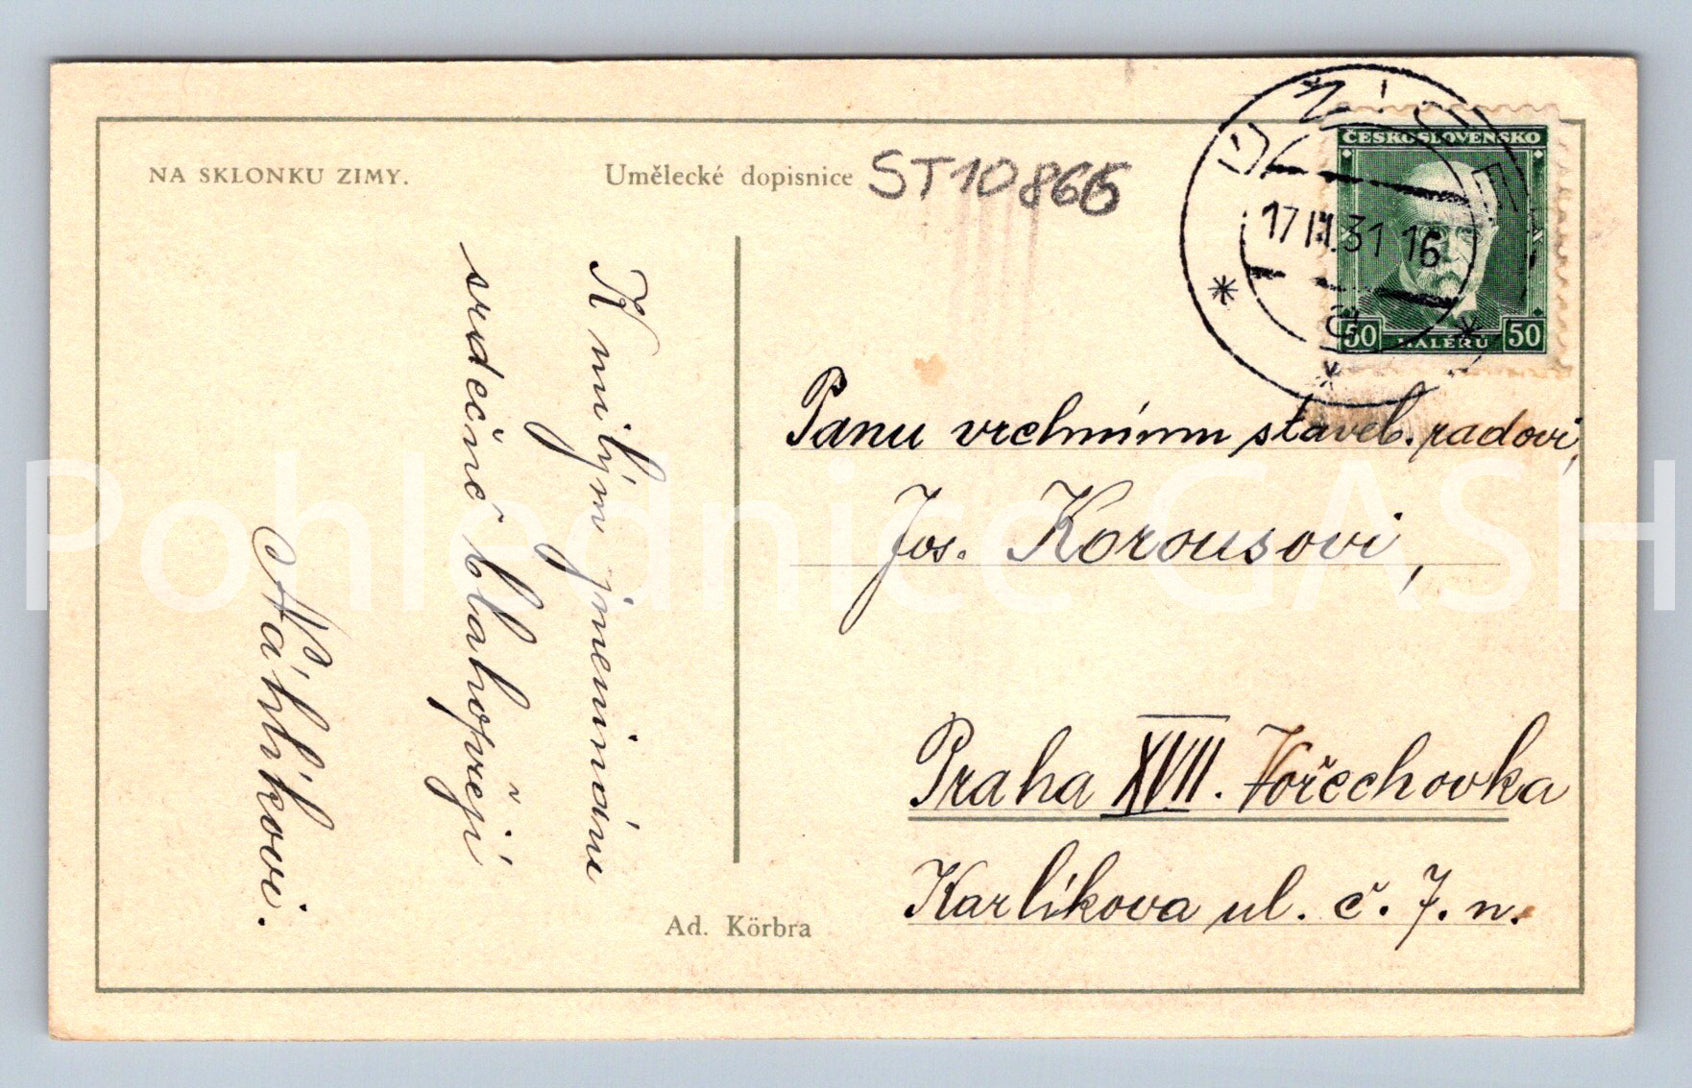 NA SKLONKU ZIMY.
Umělecké dopisnice
ST10866
ČESKOSLOVENSKO
17 III.31 16
50 HALÉŘŮ 50
K milým jmeninám
srdečně blahopřejí
Náhlíkovi.
Panu vrchnímu staveb. radovi,
Jos. Korousovi,
Praha XVII. Vořechovka
Karlíkova ul. č. 7. n.
Ad. Körbra
Pohlednice GASH